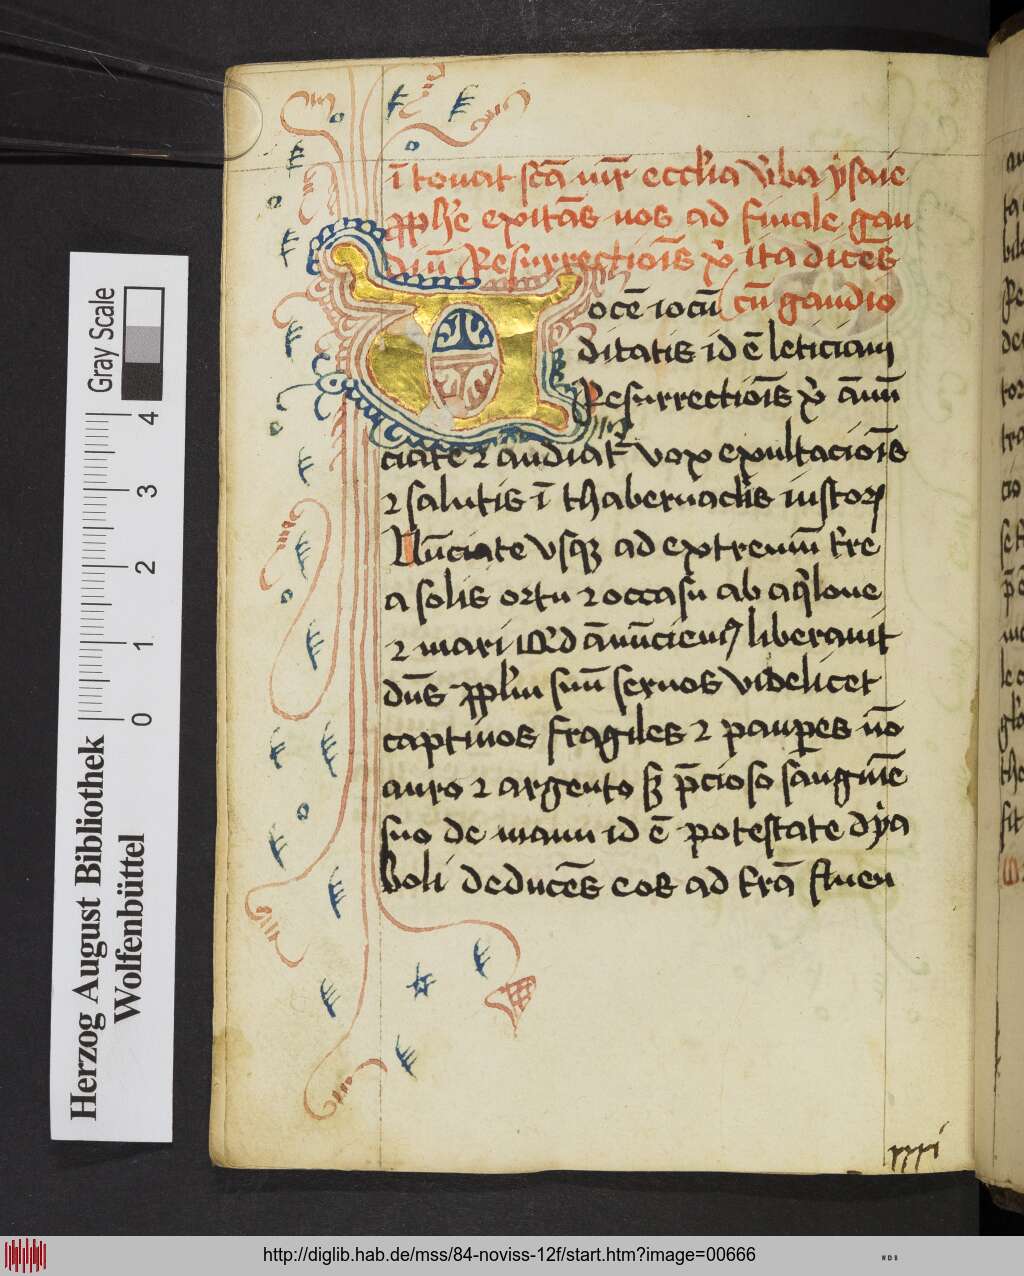 ī tonat scā mr̄ eccl'ia v̄ba ysaie
pph'e exitās nos ad finale gau
diū Resurrectiōis xp̄i ita dicēs
V ocē iocū cū gaudio
ditatis id ē leticiam
Resurrectiōis xp̄i ānū
ciate ⁊ audiat᷑ vox exultaciōis
⁊ salutis ī thabernacl'is iustoꝝ
Nūciate vsqꝫ ad extremū t're
a solis ortu ⁊ occasu ab aq̇lone
⁊ mari Qd ānūciem⁹ liberauit
dn̄s ppl'm suū seruos videlicet
captiuos fragiles ⁊ paup̲es nō
auro ⁊ argento sꝫ p̄cioso sanguīe
suo de manu id ē potestate dya
boli deducēs eos ad t'rā fluen
xxxi
Gray Scale
0 1 2 3 4
Herzog August Bibliothek
Wolfenbüttel
http://diglib.hab.de/mss/84-noviss-12f/start.htm?image=00666